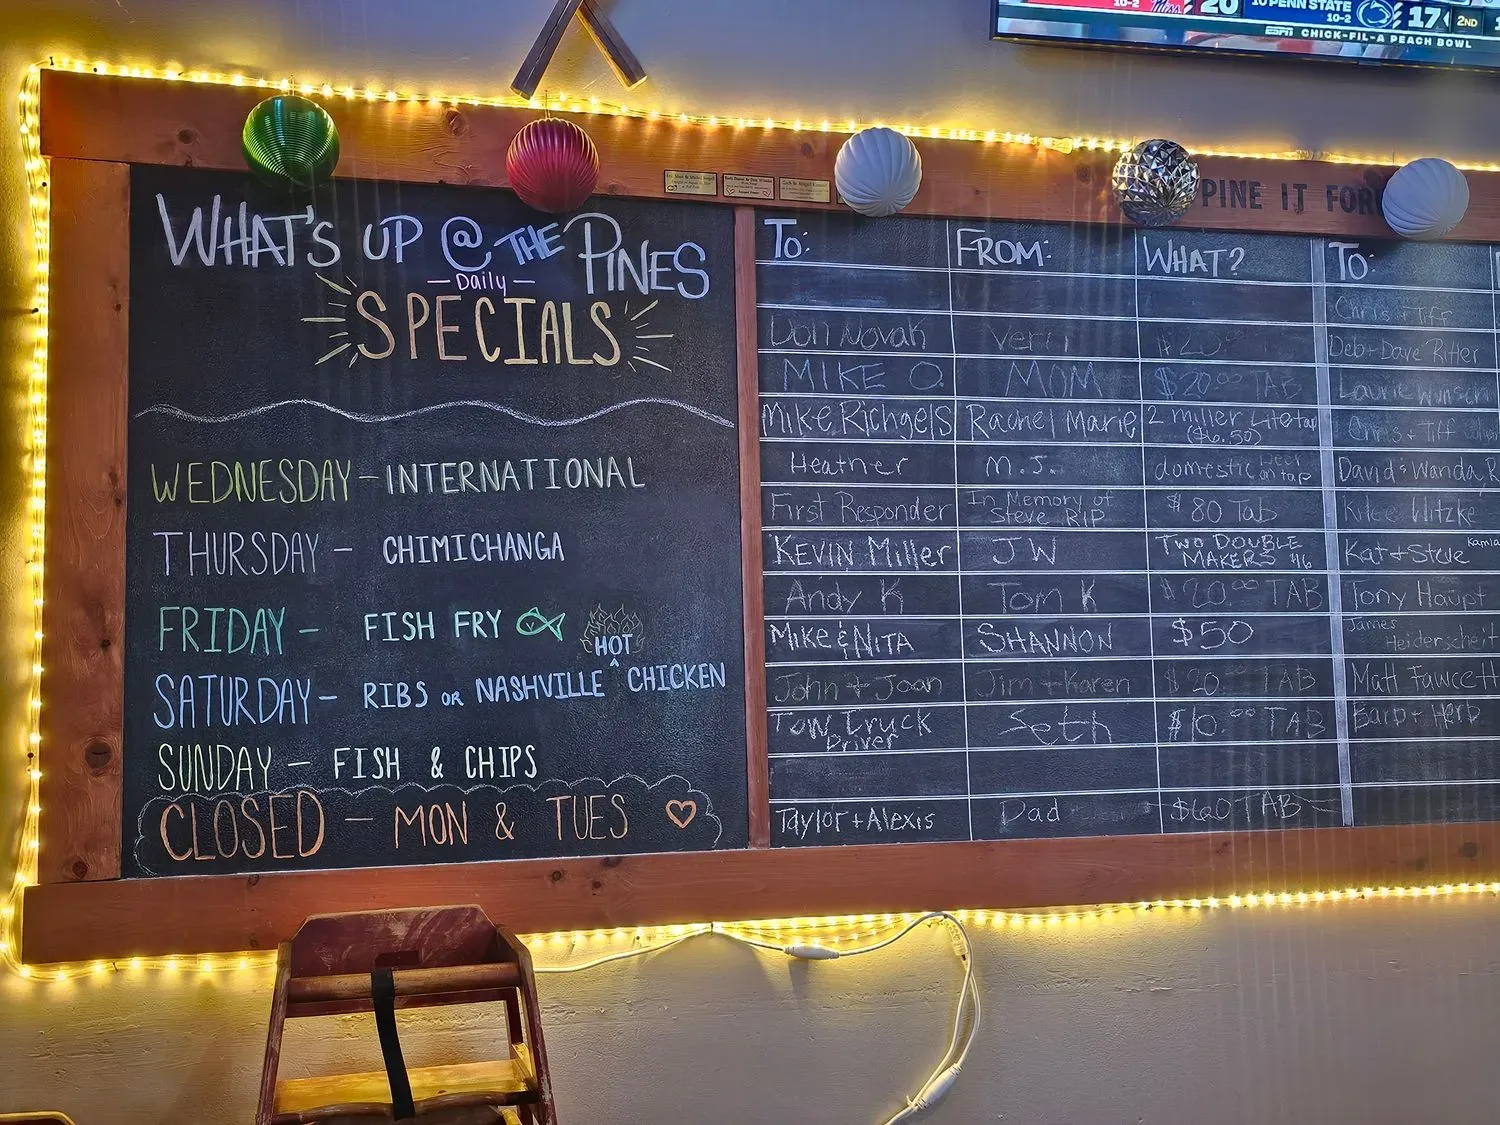 10-2 Ole Miss 20 10 PENN STATE 10-2 17 2ND
ESPN CHICK-FIL-A PEACH BOWL
PINE IT FOR
WHAT'S UP @ THE PINES
— Daily —
SPECIALS
WEDNESDAY - INTERNATIONAL
THURSDAY - CHIMICHANGA
FRIDAY - FISH FRY
SATURDAY - RIBS OR NASHVILLE HOT CHICKEN
SUNDAY - FISH & CHIPS
CLOSED - MON & TUES
TO: FROM: WHAT? TO:
Chris + Tiff
Don Novak Verri $20.00 Deb + Dave Ritter
MIKE O. MOM $20.00 TAB Laurie Wunsch
Mike Richgels Rachel Marie 2 Miller Lite tap ($6.50) Chris + Tiff
Heather M.J. domestic beer on tap David & Wanda R
First Responder In Memory of Steve RIP $80 Tab Witzke
KEVIN Miller JW TWO DOUBLE MAKERS 46 Kat & Steve
Andy K Tom K $20.00 TAB Tony Haupt
MIKE & NITA SHANNON $50 James Heiderscheit
John + Joan Jim + Karen $20.00 TAB Matt Fawcett
Tow Truck Driver Seth $10.00 TAB Barp + Herb
Taylor + Alexis Dad $60 TAB